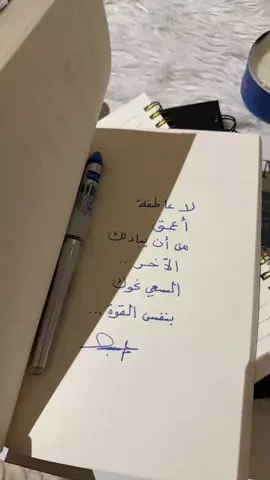 لا عاطفة
أعمق
من أن يبادلك
الآخر ..
السعي نحوك
بنفس القوة ...